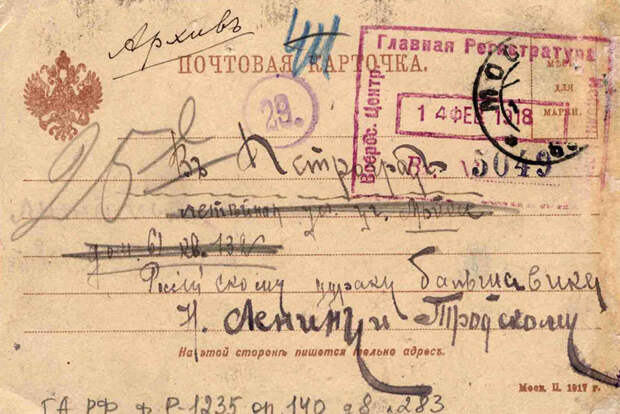 Архивъ
ПОЧТОВАЯ КАРТОЧКА.
Главная Регистратура
Всерос. Центр
14 ФЕВ 1918
5049
МОС
МѢСТО
ДЛЯ
МАРКИ.
29.
Въ Петроградъ
ул. уг.
дом. 61 кв. 132
дураку большевика
Н. Ленину и Троцкому
На этой сторонѣ пишется только адресъ.
Моск. II. 1917 г.
ГА РФ ф. Р-1235 оп. 140 д 8 л 283